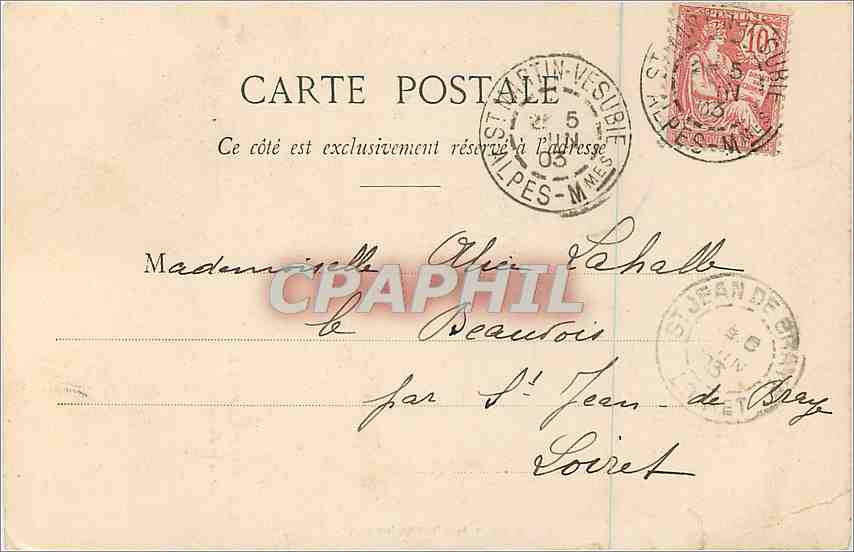 POSTES
10
ST MARTIN-VESUBIE
5
JUIN
03
ALPES-MMES
ST MARTIN-VESUBIE
5
JUIN
03
ALPES-MMES
CARTE POSTALE
Ce côté est exclusivement réservé à l'adresse
Mademoiselle Alice Lahalle
CPAPHIL
le Beauvois
par St Jean de Braye
Loiret
ST JEAN DE BRAYE
6
JUIN
03
LOIRET